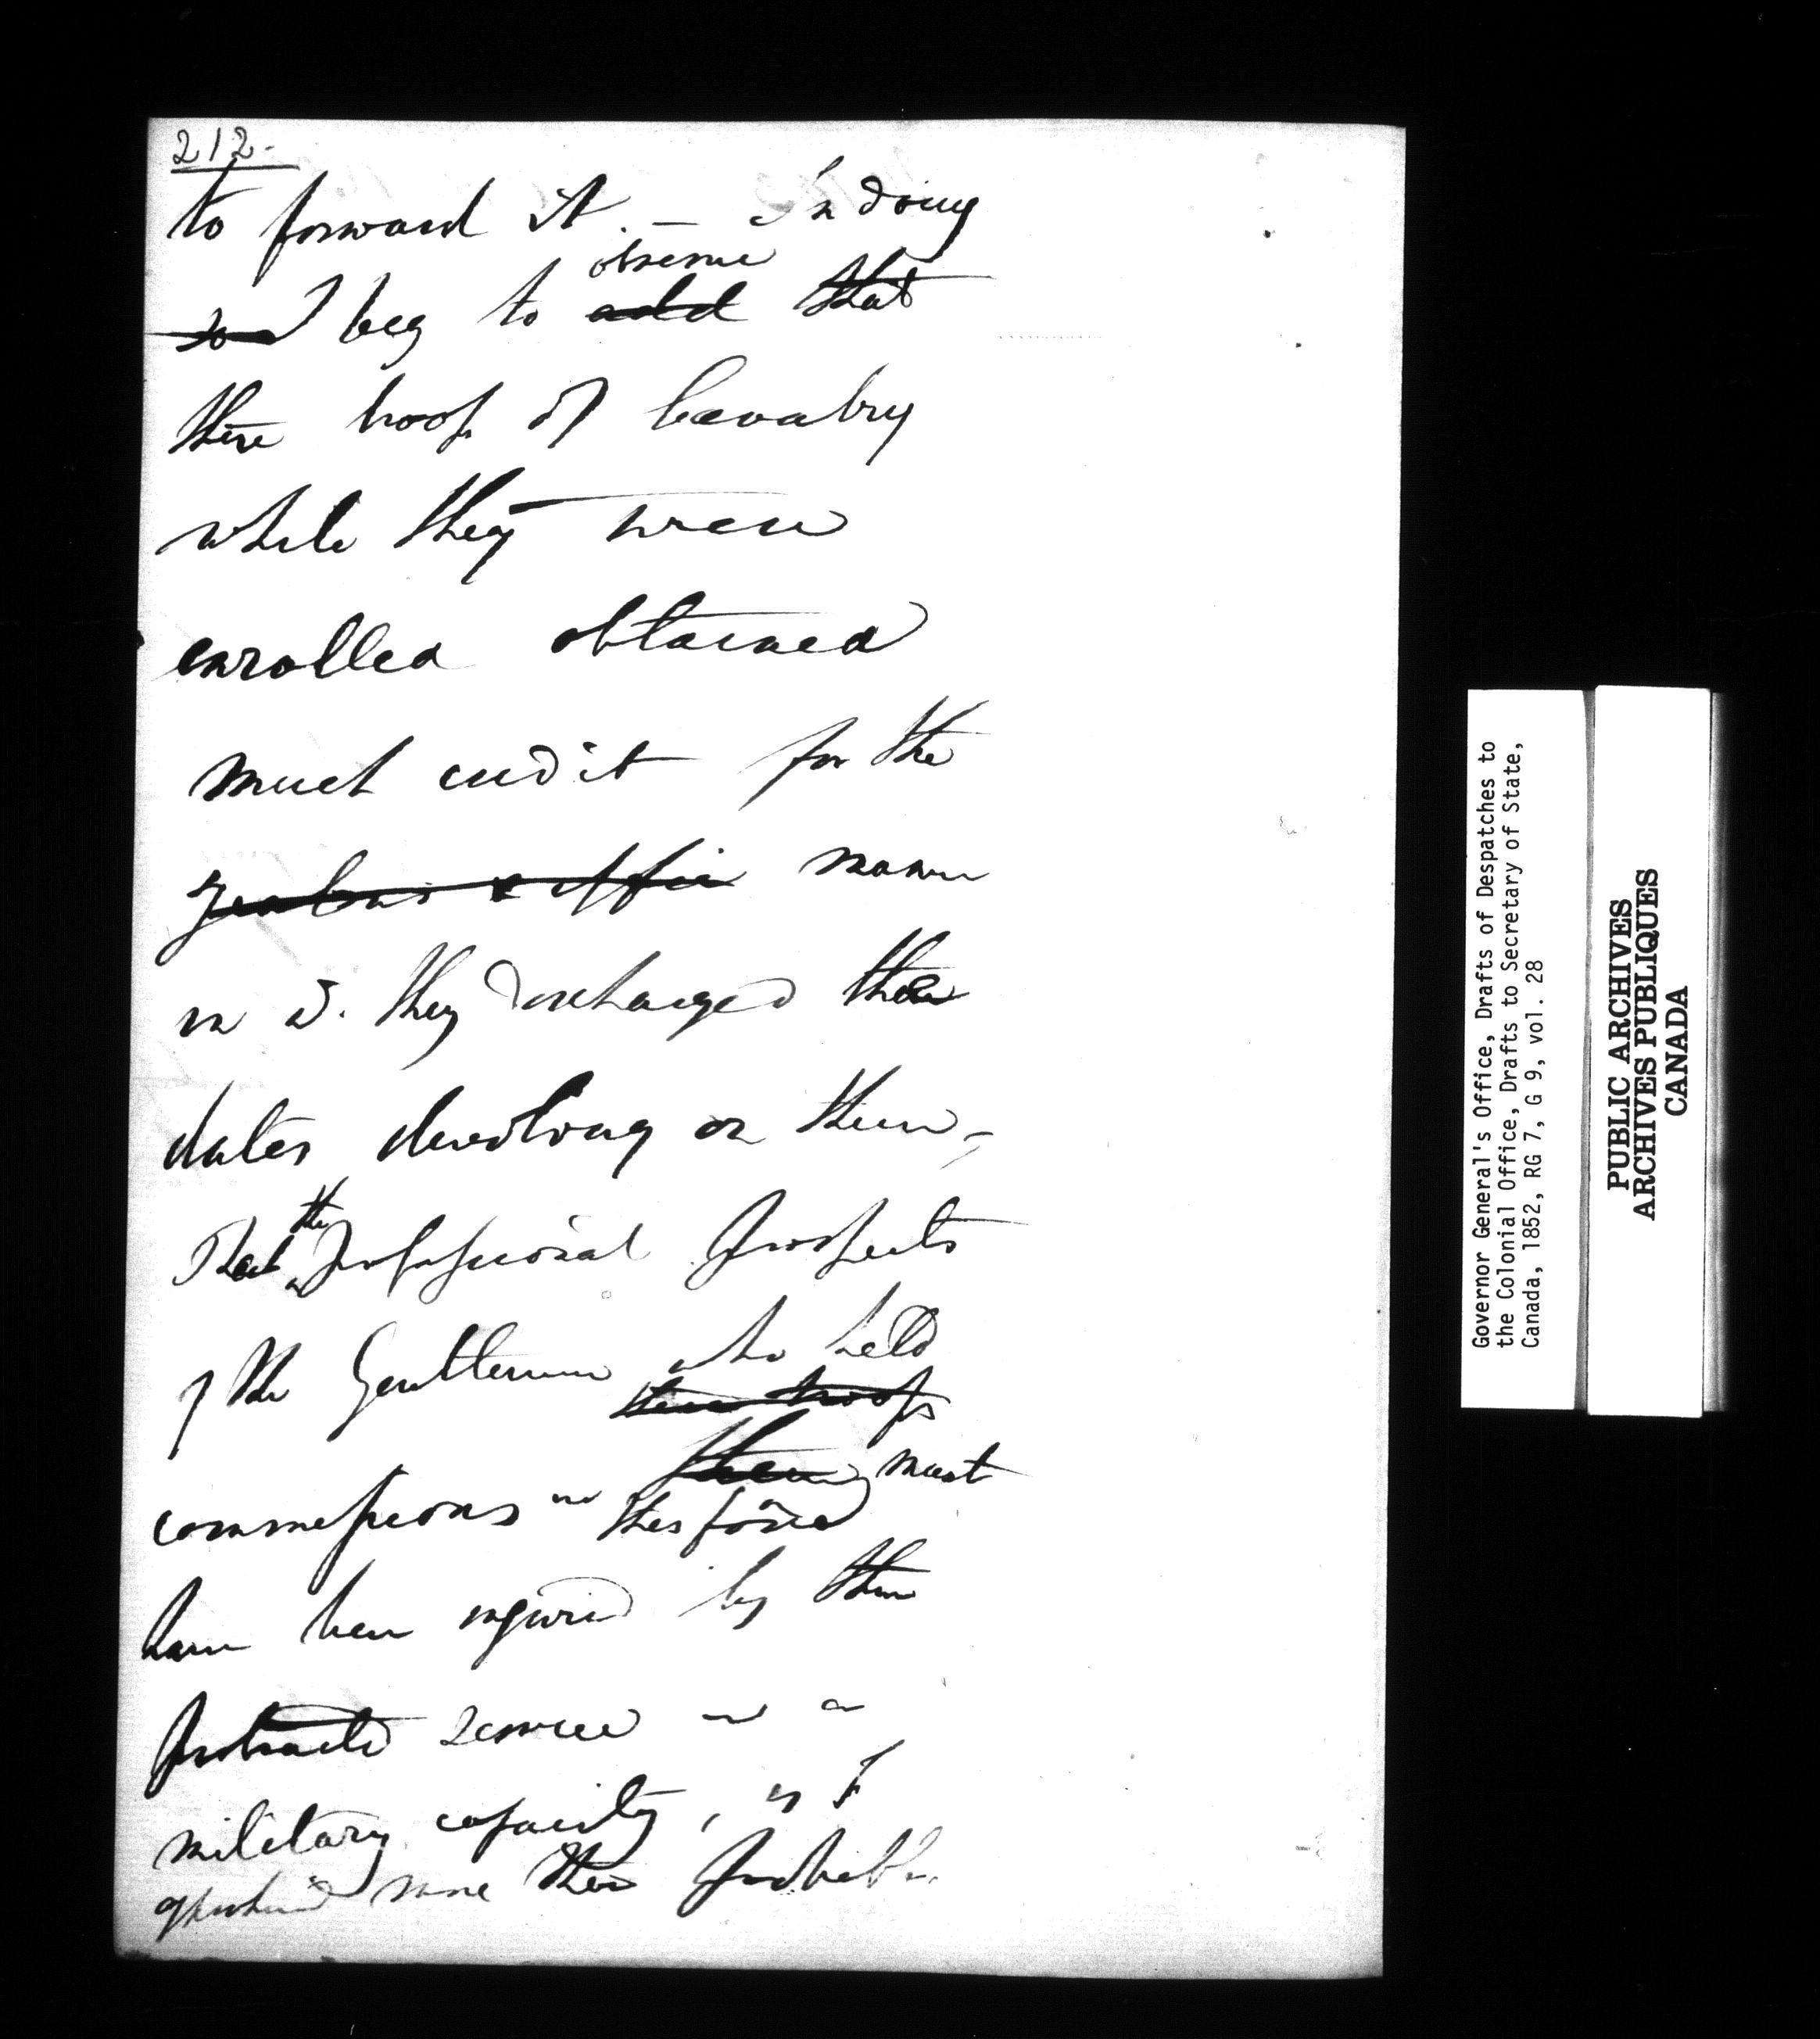 212-
to forward it. — In doing
observe
so I beg to add that
these troops of Cavalry
while they were
enrolled obtained
much credit for the
zealous & effici manner
in wh. they discharged their
duties devolving on them,-
the
That professional prospects
of the Gentlemen who held
their troops
commissions in them must
this force
have been injured by their
protracted service in a
military capacity, is I
more than probable.
Governor General's Office, Drafts of Despatches to
the Colonial Office, Drafts to Secretary of State,
Canada, 1852, RG 7, G 9, vol. 28
PUBLIC ARCHIVES
ARCHIVES PUBLIQUES
CANADA